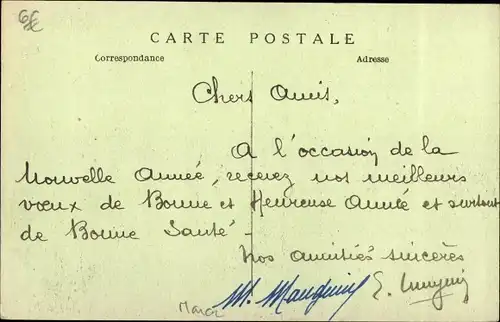 6€
CARTE POSTALE
Correspondance Adresse
Chers Amis,
A l'occasion de la
Nouvelle Année, recevez nos meilleurs
vœux de Bonne et Heureuse Année et surtout
de Bonne Santé -
Nos amitiés sincères
M.